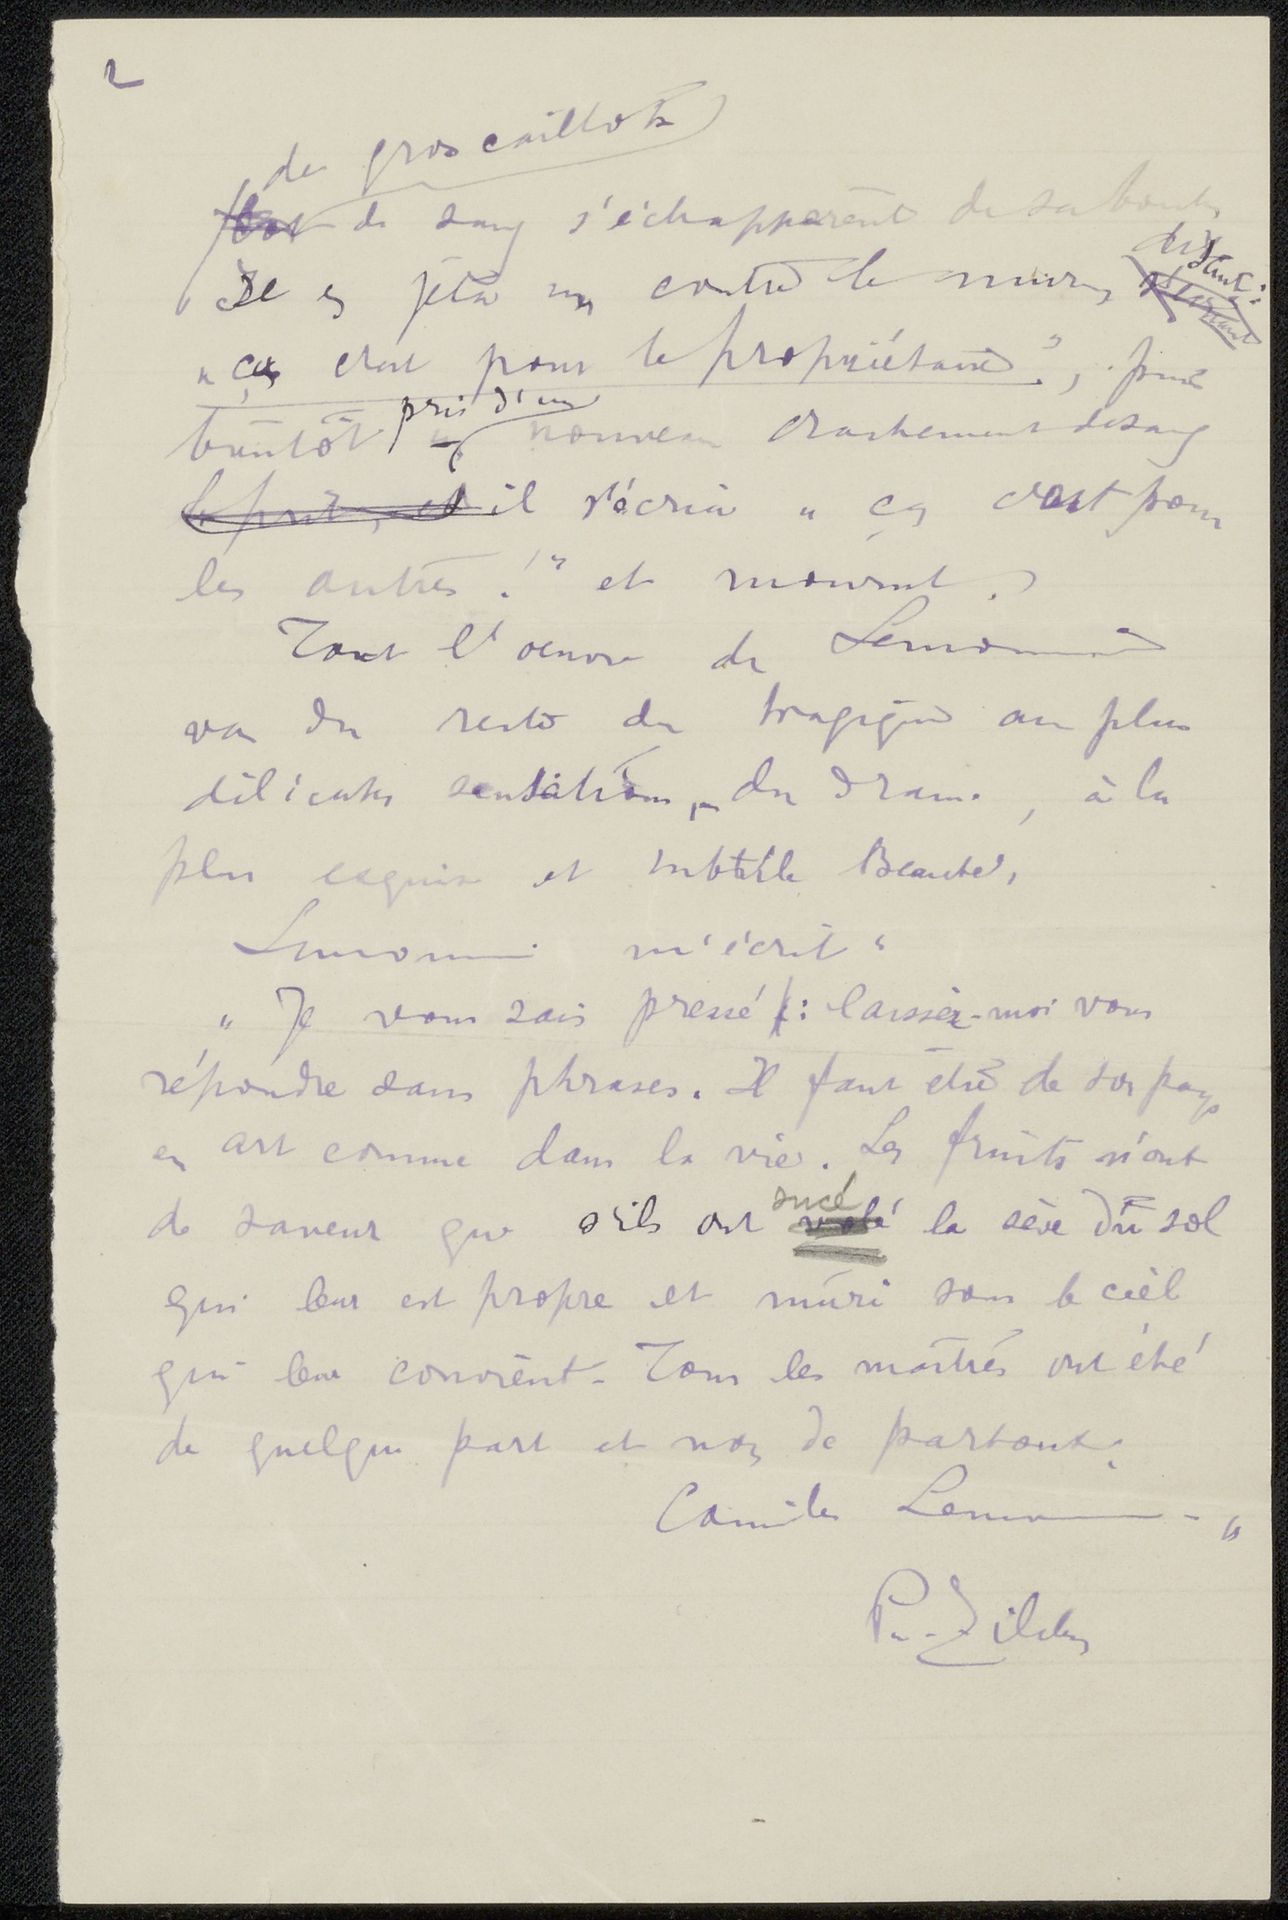 2
de gros caillots
de sang s'échappèrent de sa bouche
Il en jeta un contre le mur, disant:
"ça c'est pour le propriétaire", puis
bientôt pris d'un nouveau crachement de sang
le prit, et il s'écria "ça c'est pour
les autres!" et mourut.
Tout l'oeuvre de Lemonnier
va du reste du tragique aux plus
délicates sensations, du drame, à la
plus exquise et subtile Beauté.
Lemonnier m'écrit "
"Je vous sais pressé: laissez-moi vous
répondre sans phrases. Il faut être de son pays
en art comme dans la vie. Les fruits n'ont
de saveur que s'ils ont sucé la sève du sol
qui leur est propre et mûri sous le ciel
qui leur convient. Tous les maîtres ont été
de quelque part et non de partout.
Camille Lemonnier"
P. Zilcken